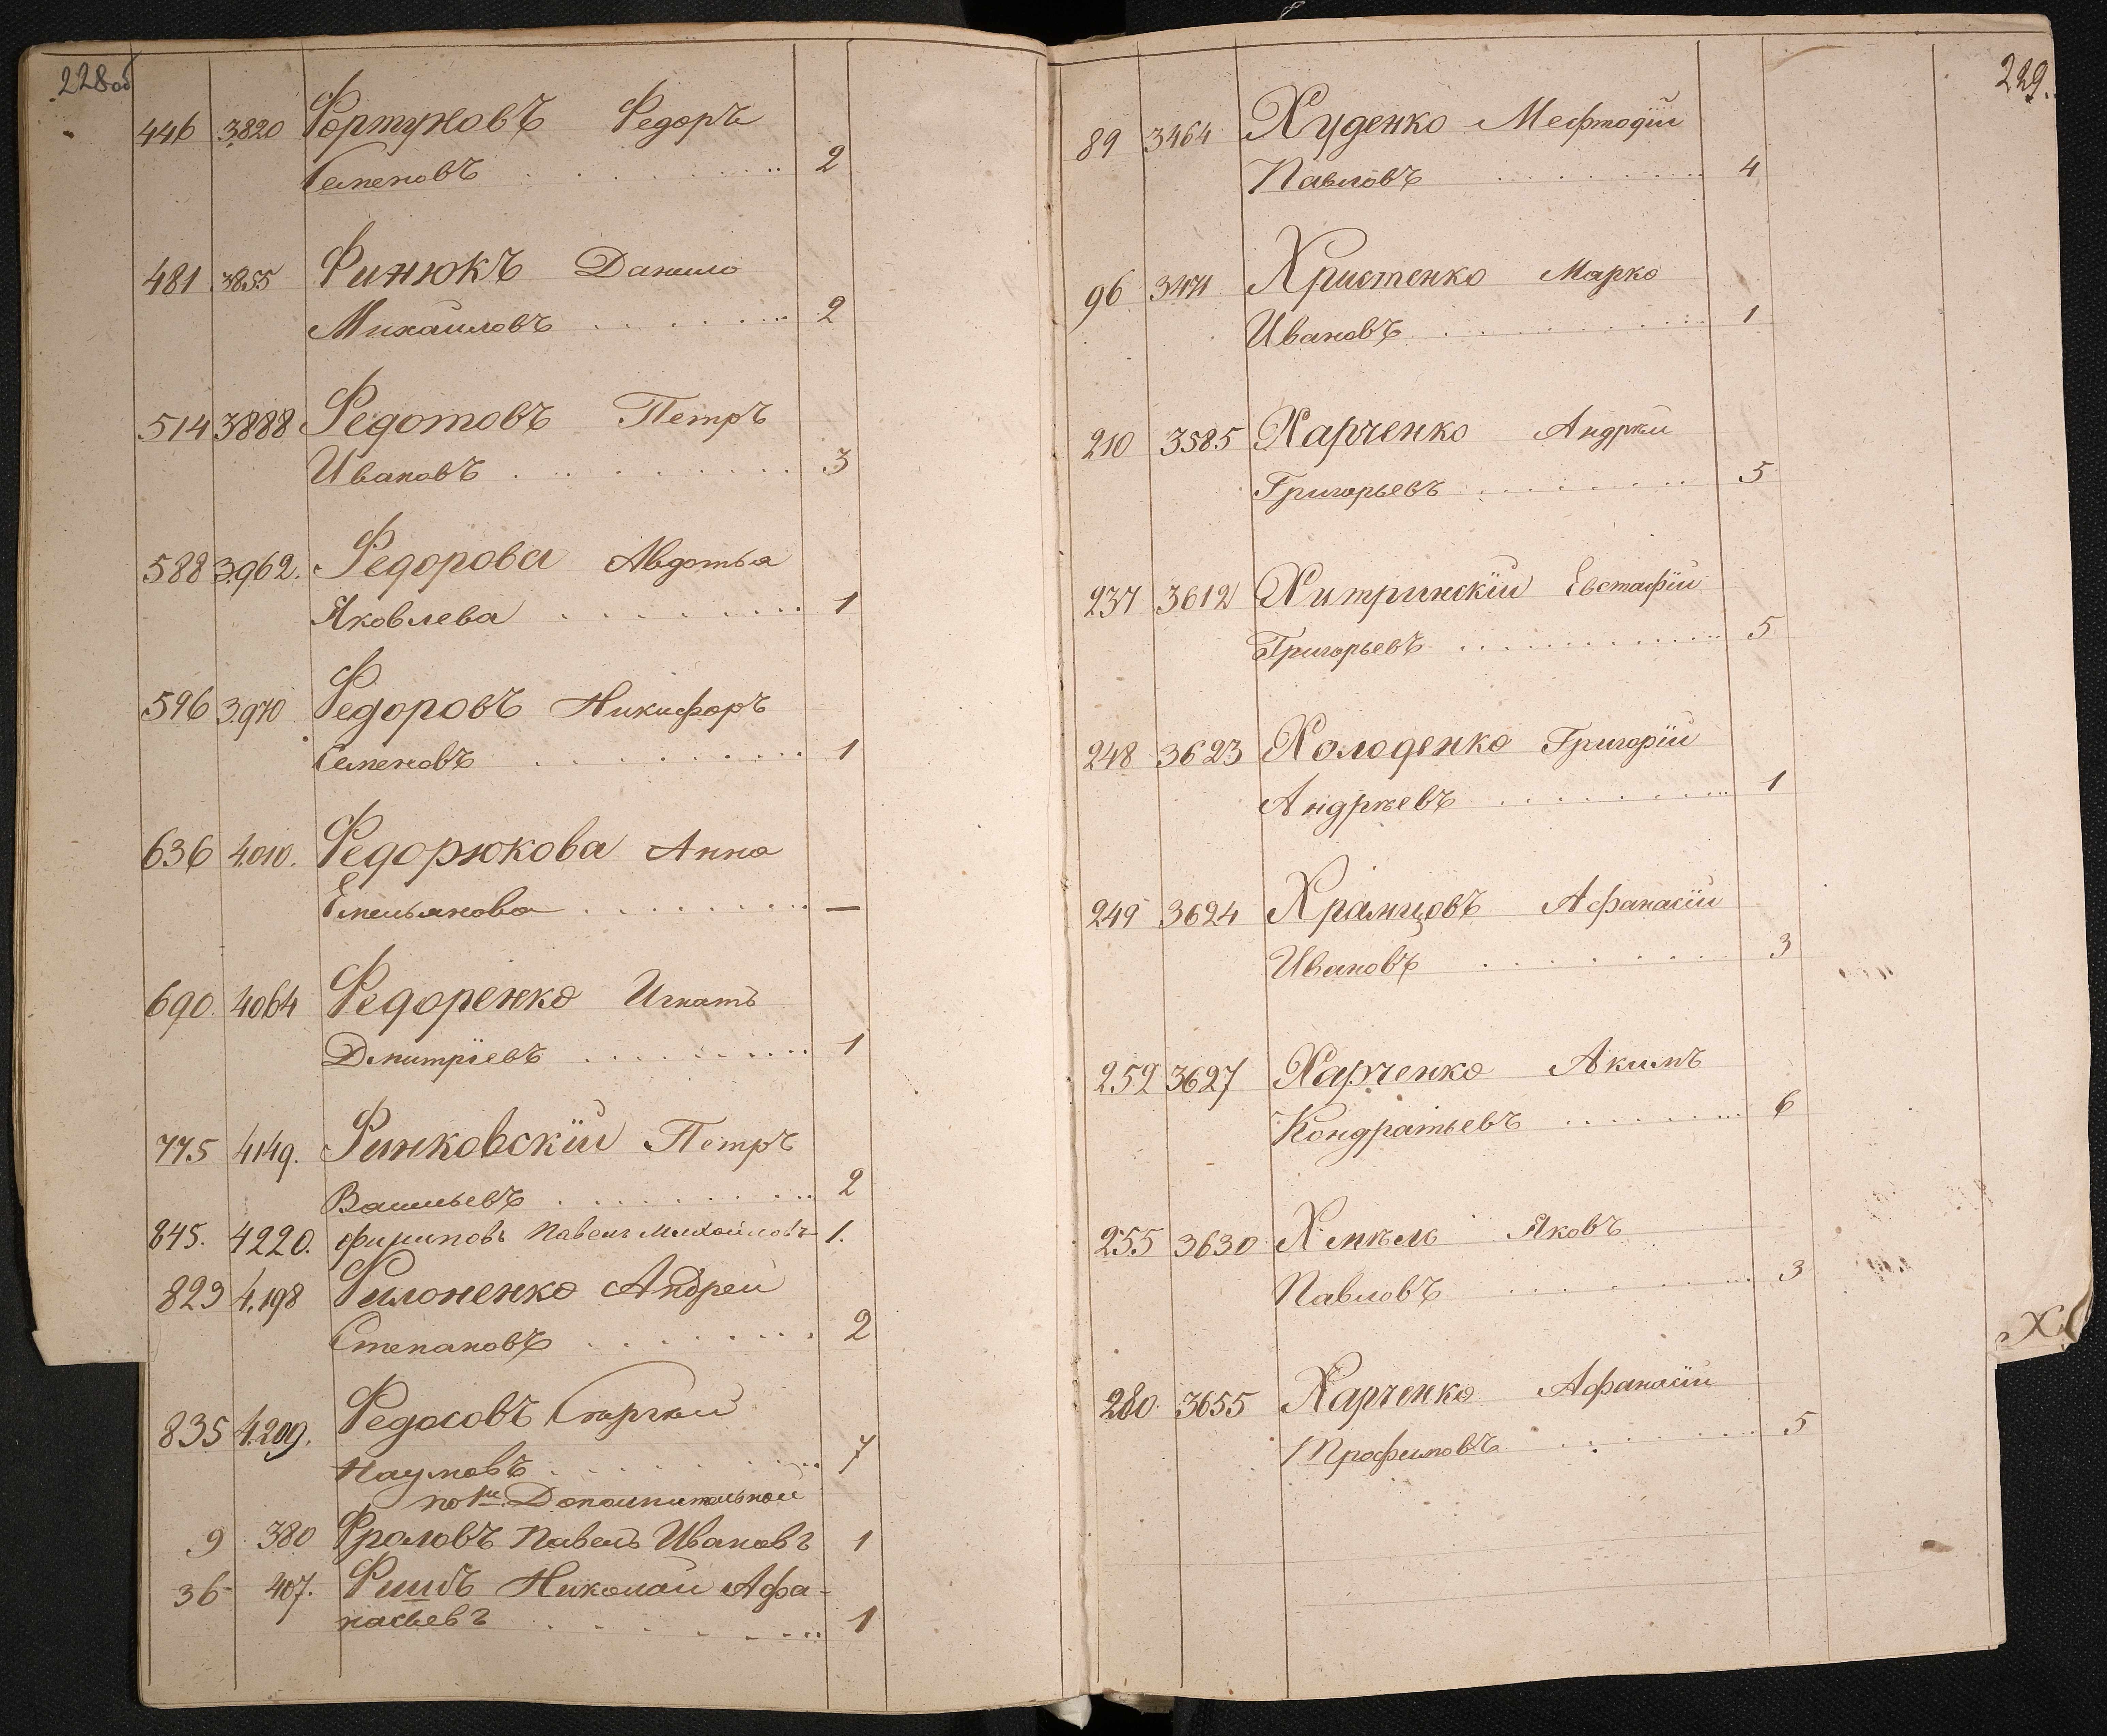 228об
446 3820 Фортуновъ Федоръ
Семеновъ . . . . . . . . 2
481 3855 Финюкъ Данило
Михайловъ . . . . . . . 2
514 3888 Федотовъ Петръ
Ивановъ . . . . . . . . 3
588 3962. Федорова Авдотья
Яковлева . . . . . . . 1
596 3970 Федоровъ Никифоръ
Семеновъ . . . . . . . 1
636 4010. Федорюкова Анна
Емельянова . . . . . . . —
690 4064 Федоренко Игнатъ
Дмитріевъ . . . . . . . 1
775 4149. Финковскій Петръ
Васильевъ . . . . . . . 2
845. 4220. филиповъ Павелъ Михайловъ 1.
823 4,198 Филоненко Андрей
Степановъ . . . . . . . 2
835 4.209. Федосовъ Сергѣй
Наумовъ . . . . . . . 7
по 1й Дополнительной
9 380 Фроловъ Павелъ Ивановъ 1
36 407. Николай Афа-
насьевъ . . . . . . . 1
229.
89 3464 Худенко Мефтодій
Павловъ . . . . . . . 4
96 3471 Христенко Марко
Ивановъ . . . . . . . 1
210 3585 Харченко Андрѣй
Григорьевъ . . . . . . . 5
237 3612 Хитринскій Евстафій
Григорьевъ . . . . . . . 5
248 3623 Холоденко Григорій
Андрѣевъ . . . . . . . 1
249 3624 Храмцовъ Афанасій
Ивановъ . . . . . . . 3
252 3627 Харченко Акимъ
Кондратьевъ . . . . . . 6
255 3630 Хмѣль Яковъ
Павловъ . . . . . . . 3
Х
280 3655 Харченко Афанасій
Трофимовъ . . . . . . . 5